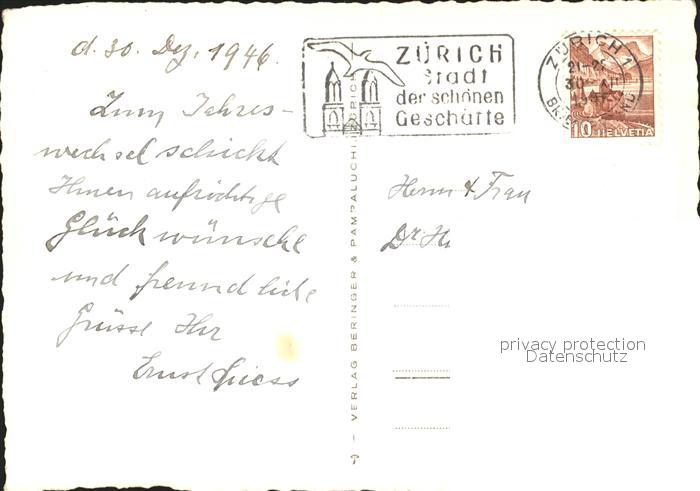 d. 30. Dez. 1946.
Zum Jahres-
wechsel schickt
Ihnen aufrichtige
Glückwünsche
und freundliche
Grüsse Ihr
Ernst
ZÜRICH
Stadt
der schönen
Geschäfte
ZÜRICH 1
10 HELVETIA
Herrn & Frau
Dr. H
VERLAG BERINGER & PAMPALUCHI
privacy protection
Datenschutz